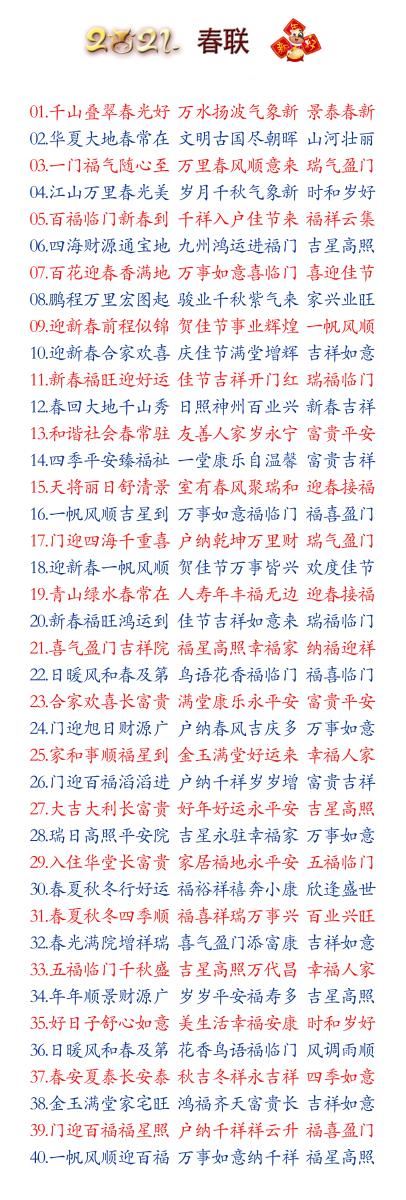 2021 春联
新年好
01.千山叠翠春光好 万水扬波气象新 景泰春新
02.华夏大地春常在 文明古国尽朝晖 山河壮丽
03.一门福气随心至 万里春风顺意来 瑞气盈门
04.江山万里春光美 岁月千秋气象新 时和岁好
05.百福临门新春到 千祥入户佳节来 福祥云集
06.四海财源通宝地 九州鸿运进福门 吉星高照
07.百花迎春香满地 万事如意喜临门 喜迎佳节
08.鹏程万里宏图起 骏业千秋紫气来 家兴业旺
09.迎新春前程似锦 贺佳节事业辉煌 一帆风顺
10.迎新春合家欢喜 庆佳节满堂增辉 吉祥如意
11.新春福旺迎好运 佳节吉祥开门红 瑞福临门
12.春回大地千山秀 日照神州百业兴 新春吉祥
13.和谐社会春常驻 友善人家岁永宁 富贵平安
14.四季平安臻福祉 一堂康乐自温馨 富贵吉祥
15.天将丽日舒清景 室有春风聚瑞和 迎春接福
16.一帆风顺吉星到 万事如意福临门 福喜盈门
17.门迎四海千重喜 户纳乾坤万里财 瑞气盈门
18.迎新春一帆风顺 贺佳节万事皆兴 欢度佳节
19.青山绿水春常在 人寿年丰福无边 迎春接福
20.新春福旺鸿运到 佳节吉祥如意来 瑞福临门
21.喜气盈门吉祥院 福星高照幸福家 纳福迎祥
22.日暖风和春及第 鸟语花香福临门 福喜临门
23.合家欢喜长富贵 满堂康乐永平安 富贵平安
24.门迎旭日财源广 户纳春风吉庆多 万事如意
25.家和事顺福星到 金玉满堂好运来 幸福人家
26.门迎百福滔滔进 户纳千祥岁岁增 富贵吉祥
27.大吉大利长富贵 好年好运永平安 吉星高照
28.瑞日高照平安院 吉星永驻幸福家 万事如意
29.入住华堂长富贵 家居福地永平安 五福临门
30.春夏秋冬行好运 福裕祥禧奔小康 欣逢盛世
31.春夏秋冬四季顺 福喜祥瑞万事兴 百业兴旺
32.春光满院增祥瑞 喜气盈门添富康 吉祥如意
33.五福临门千秋盛 吉星高照万代昌 幸福人家
34.年年顺景财源广 岁岁平安福寿多 吉星高照
35.好日子舒心如意 美生活幸福安康 时和岁好
36.日暖风和春及第 花香鸟语福临门 风调雨顺
37.春安夏泰长安泰 秋吉冬祥永吉祥 四季如意
38.金玉满堂家宅旺 鸿福齐天富贵长 吉祥如意
39.门迎百福福星照 户纳千祥祥云升 福喜盈门
40.一帆风顺迎百福 万事如意纳千祥 福星高照